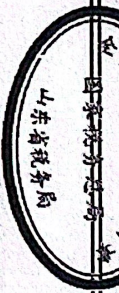 国家税务总局
山东省税务局